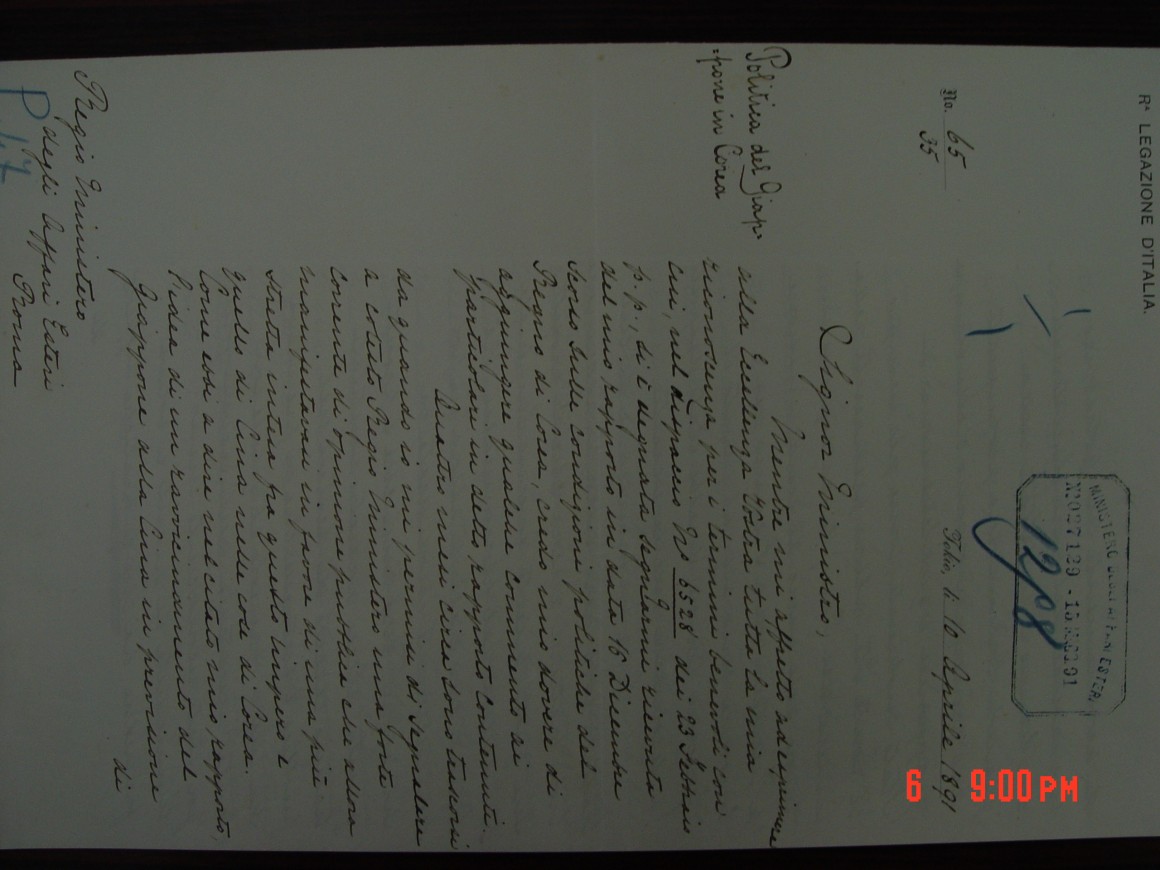 Rª LEGAZIONE D'ITALIA.
MINISTERO DEGLI AFFARI ESTERI
Nº027129-15
1298
Tokio, li 10 Aprile 1891
No. 65
35
Politica del Giap=
=pone in Corea
Signor Ministro,
Mentre mi affretto ad esprimere
alla Eccellenza Vostra tutta la mia
riconoscenza per i termini benevoli con
cui, nel dispaccio Nº 6528 dei 23 Febbraio
p.p., si è degnata segnarmi ricevuta
del mio rapporto in data 16 Dicembre
scorso sulle condizioni politiche del
Regno di Corea, credo mio dovere di
aggiungere qualche commento ai
particolari in detto rapporto contenuti.
Quattro mesi circa sono trascorsi
da quando io mi permisi di segnalare
a cotesto Regio Ministero una forte
corrente di opinione pubblica che allora
manifestavasi in favore di una più
stretta intesa fra questo Impero e
quello di Cina nelle cose di Corea.
Come ebbi a dire nel citato mio rapporto,
l'idea di un ravvicinamento del
Giappone alla Cina in previsione
di
Regio Ministero
degli Affari Esteri
Roma
P 47
6 9:00PM